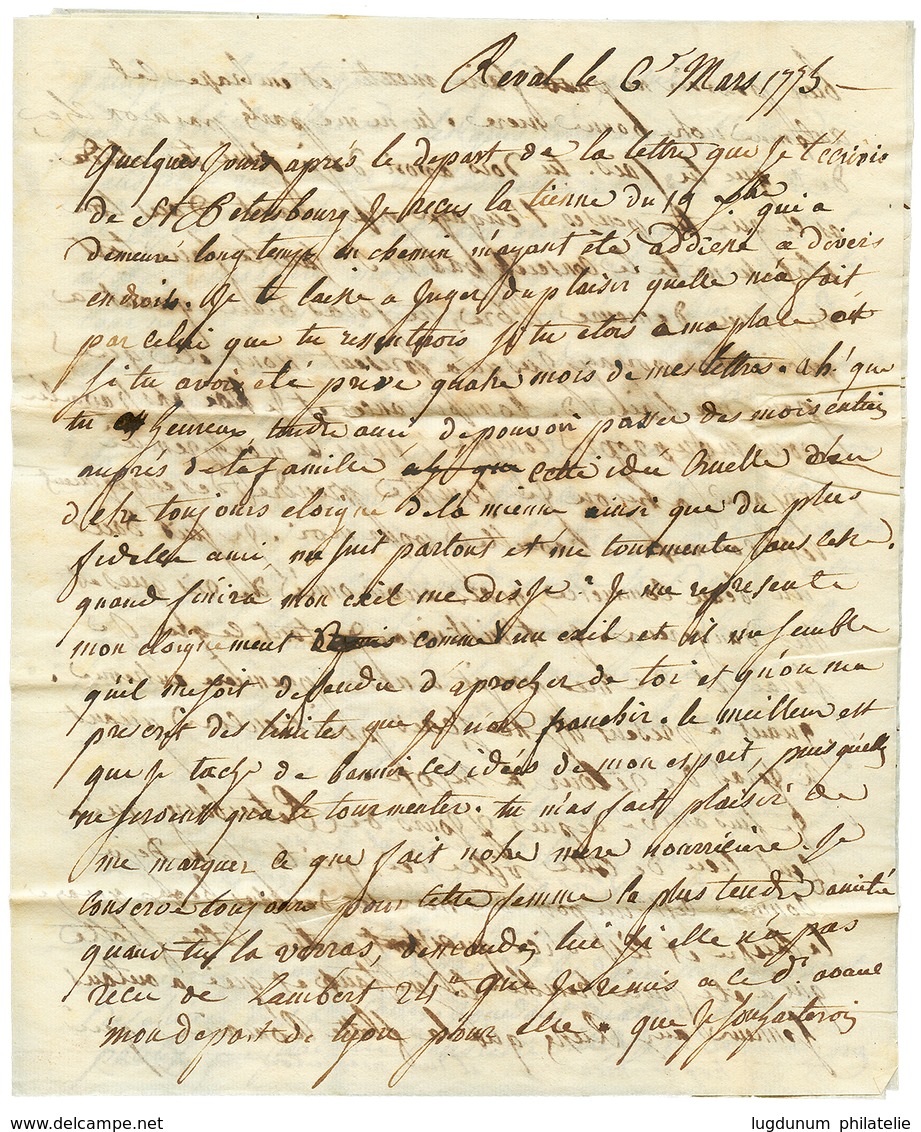 Reval le 6r Mars 1775
Quelques Jours après le depart de la lettre que Je t'ecrivis
de St Petersbourg Je reçus la tienne du 19 qui a
demeuré long temps en chemin m'ayant été addressé a divers
endroits. Je te laisse a Juger du plaisir quelle m'a fait
par celui que tu ressentirois si tu etois a ma place et
si tu avois été privé quatre mois de mes lettres. ah! que
tu es heureux, tendre ami de pouvoir passer des mois entiers
auprès de ta famille cette idée Cruelle
d'etre toujours eloigné de la mienne ainsi que du plus
fidelle ami me suit partout et me tourmente sans cesse.
quand finira mon exil me dis Je? Je me represente
mon eloignement comme un exil et il me semble
qu'il me soit defendu d'aprocher de toi et qu'on me
prescrit des limites que Je nose franchir. le meilleur est
que Je tache de bannir ces idées de mon esprit, puis qu'elles
ne servent qua le tourmenter. tu m'as fait plaisir de
me marquer ce que fait notre mere nourriciere. Je
conserve toujours pour cette femme la plus tendre amitié
quand tu la verras, demandes lui si elle n'a pas
recu de Lambert 24# que Je remis a ce dr avant
mon depart de Lyon pour elle. que Je souhaiterois
www.delcampe.net
lugdunum philatelie